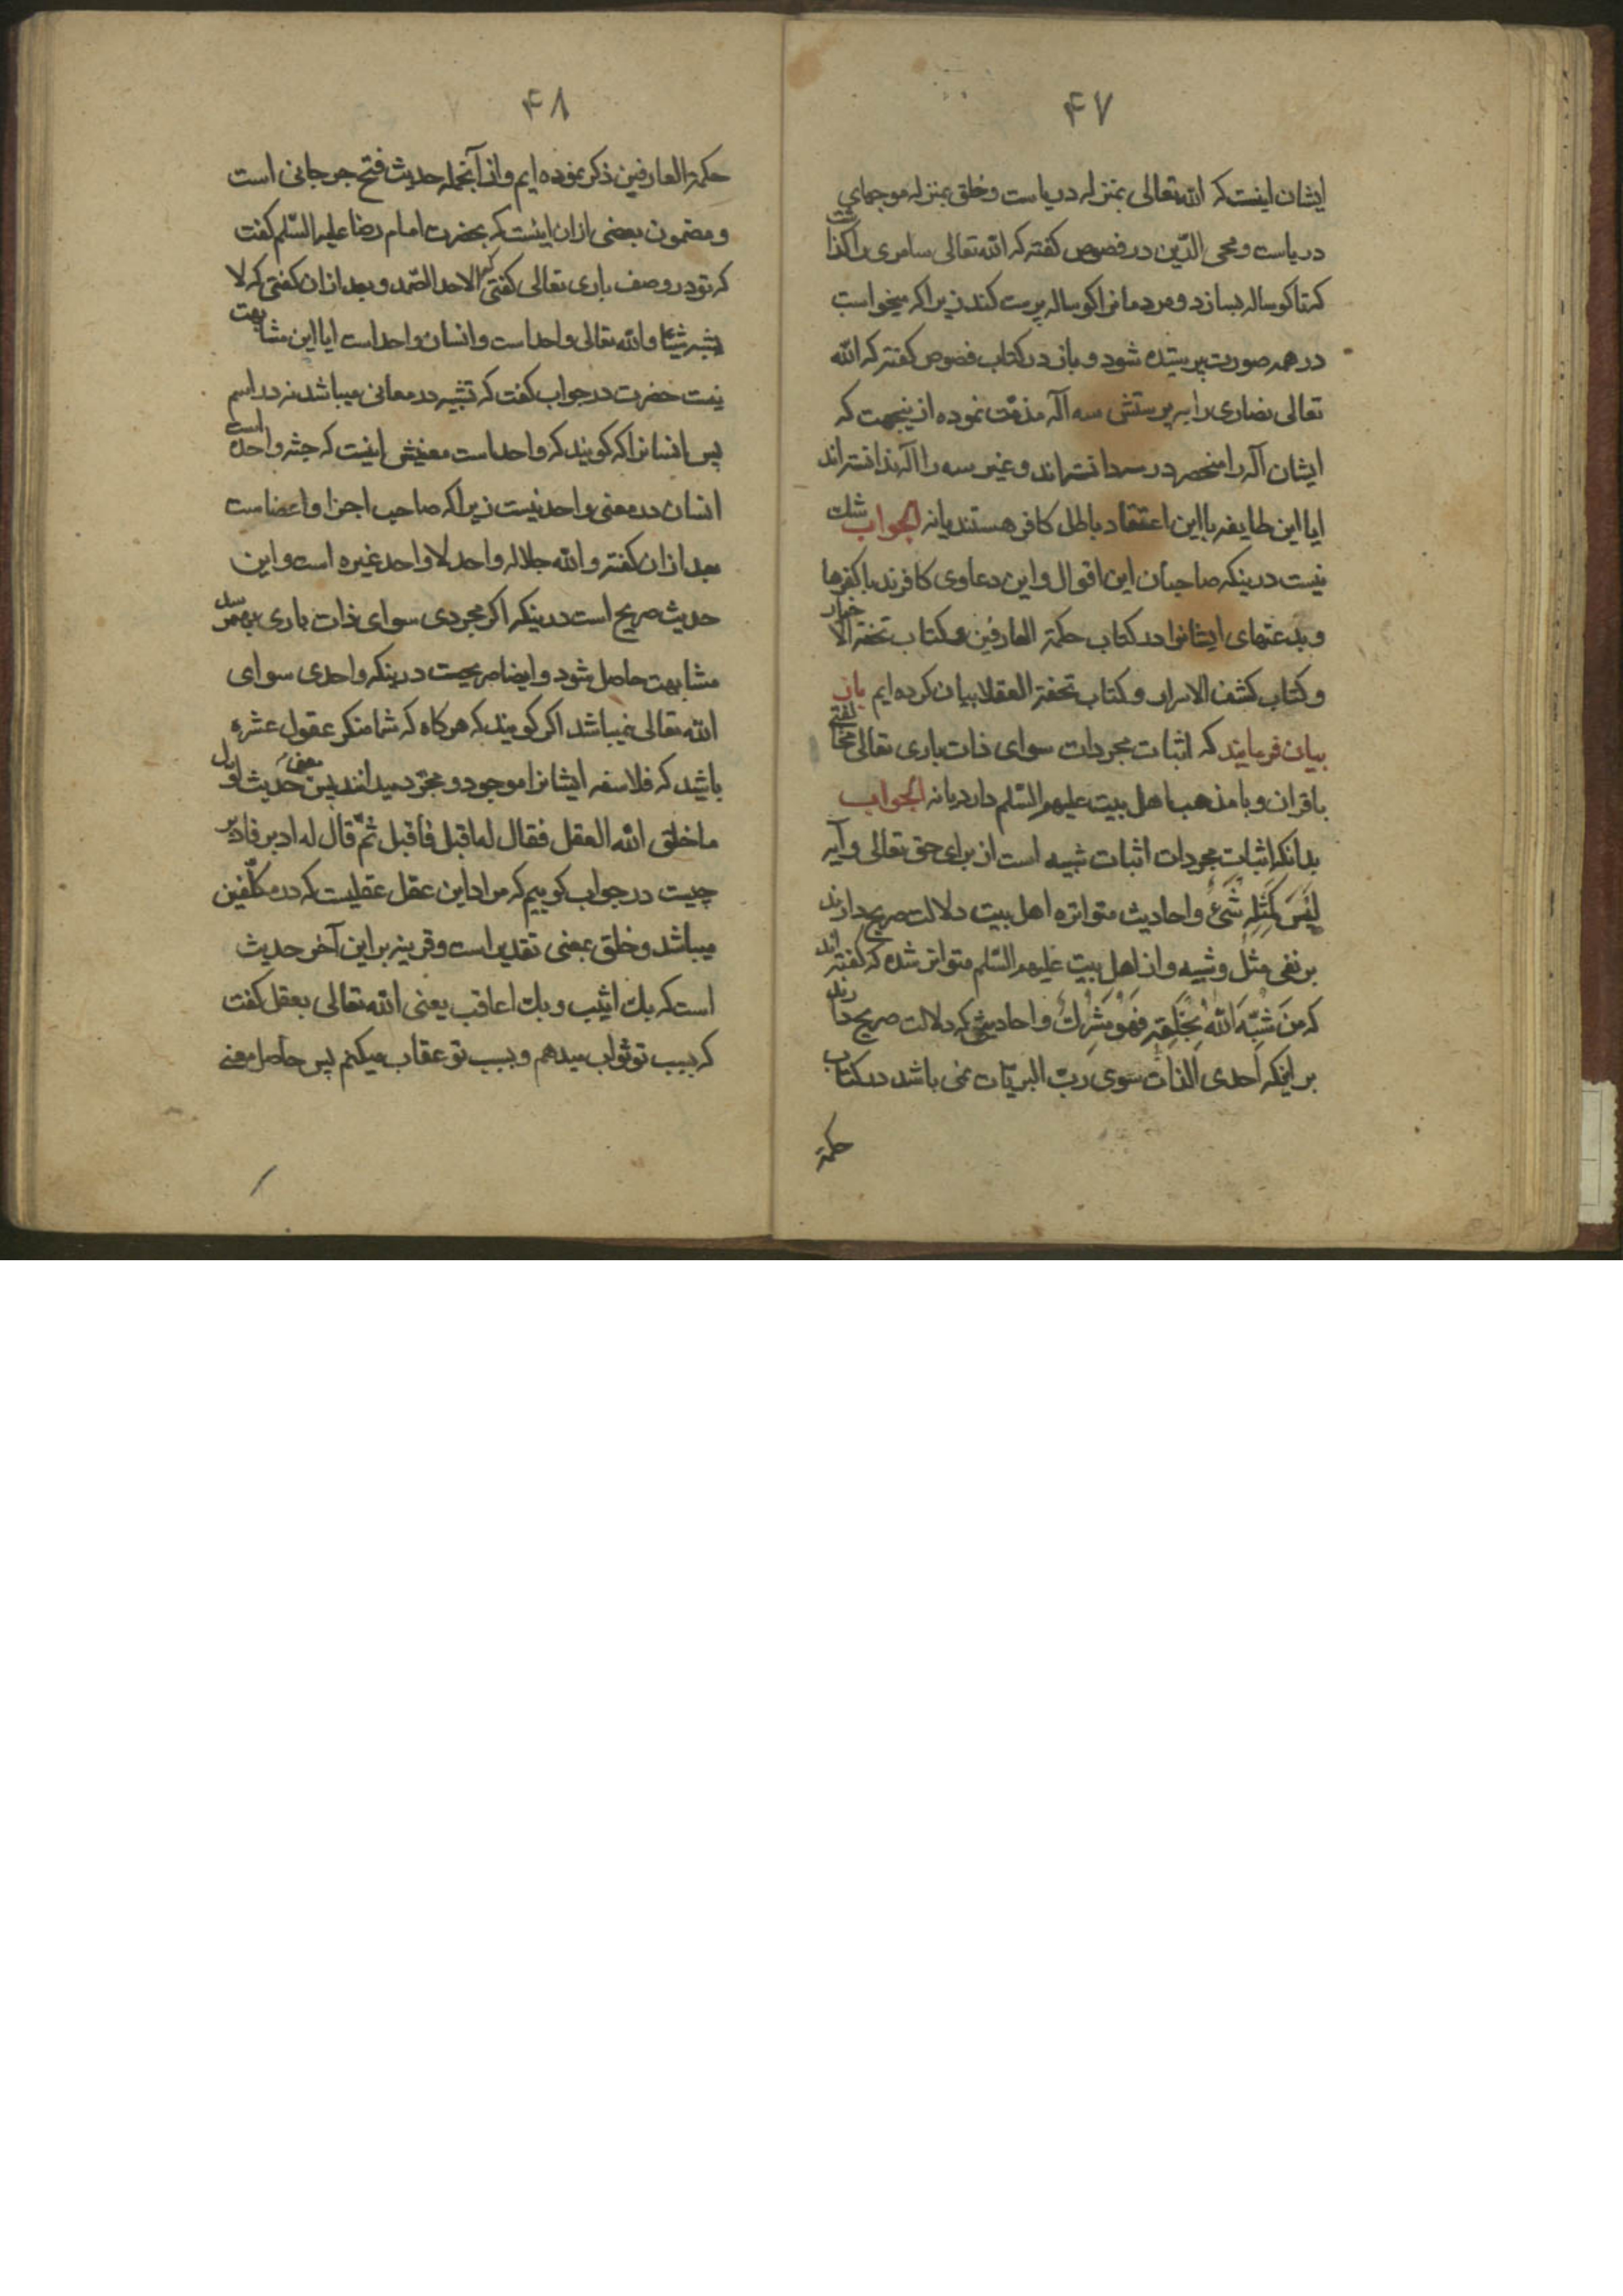 ۴۷
ایشان اینست که الله تعالی بمنزله دریاست و خلق بمنزله موجهای
دریاست و محی الدّین در فصوص کفته که الله تعالی سامری را کذاشت
که تا کوساله بسازد و مردمانرا کوساله پرست کند زیرا که میخواست
در همه صورت پرستیده شود و باز در کتاب فصوص کفته که الله
تعالی نصاری را به پرستش سه اله مذمّت نموده ازینجهت که
ایشان اله را منحصر در سه دانسته اند و غیر سه را اله ندانسته اند
ایا این طایفه با این اعتقاد باطل کافر هستند یا نه الجواب شك
نیست درینکه صاحبان این اقوال و این دعاوی کافرند با کفرها
و بدعتهای ایشانرا در کتاب حکمة العارفین و کتاب تحفة الاخیار
و کتاب کشف الاسرار و کتاب تحفة العقلا بیان کرده ایم باز
بیان فرمایند که اثبات مجردات سوای ذات باری تعالی مخالفتی
با قران و با مذهب اهل بیت علیهم السّلم دارد یا نه الجواب
بدانکه اثبات مجردات اثبات شبیه است از برای حق تعالی و آیه
لَیْسَ کَمِثْلِهِ شَیْءٌ و احادیث متواتره اهل بیت دلالت صریح دارند
بر نفی مثل و شبیه و از اهل بیت علیهم السّلم متواتر شده که کفته اند
که مَنْ شَبَّهَ اللهَ بِخَلْقِهِ فَهُوَ مُشْرِكٌ و احادیثی که دلالت صریح دارند
بر اینکه احدی الذات سوی ربّ البریّات نمی باشد در کتاب
حکمة
۴۸
حکمة العارفین ذکر نموده ایم و از آنجمله حدیث فتح جرجانی است
و مضمون بعضی ازان اینست که بحضرت امام رضا علیه السّلم کفت
که تو در وصف باری تعالی کفتی که الاحد الصّمد و بعد ازان کفتی که لا
یشبه شیئا و الله تعالی واحد است و انسان واحد است ایا این مشابهت
نیست حضرت در جواب کفت که تشبیه در معانی میباشد نه در اسم
پس انسانرا که کویند که واحد است معنیش اینست که جثه واحده است
انسان در معنی واحد نیست زیرا که صاحب اجزا و اعضاست
بعد ازان کفته و الله جلاله واحد لا واحد غیره است و این
حدیث صریح است درینکه اکر مجردی سوای ذات باری بهم رسد
مشابهت حاصل شود و ایضا صریحست درینکه واحدی سوای
الله تعالی نمیباشد اکر کویند که هرکاه که شما منکر عقول عشره
باشید که فلاسفه ایشانرا موجود و مجرّد میدانند پس معنی حدیث اوّل
ما خلق الله العقل فقال له اقبل فاقبل ثمّ قال له ادبر فادبر
چیست در جواب کوییم که مراد این عقل عقلیست که در مکلّفین
میباشد و خلق بمعنی تقدیر است و قرینه بر این آخر حدیث
است که بك اثیب و بك اعاقب یعنی الله تعالی بعقل کفت
که بسبب تو ثواب میدهم و بسبب تو عقاب میکنم پس حاصل معنی